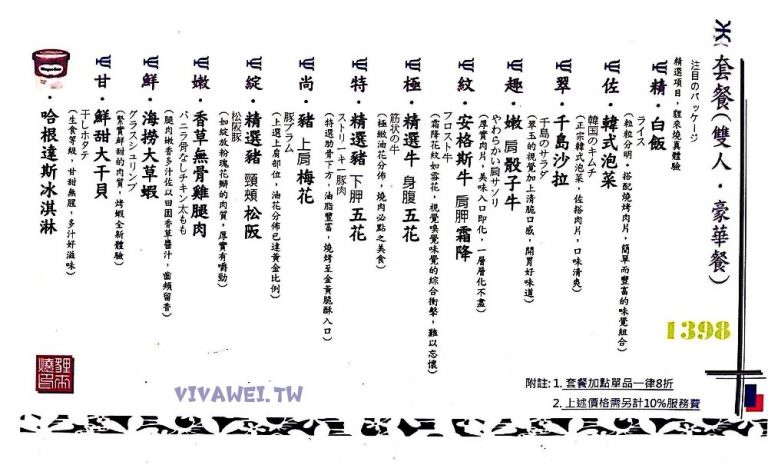 套餐(雙人．豪華餐)
注目のパッケージ
精選項目，貍來燒真體驗
精．白飯
ライス
(粒粒分明，搭配燒烤肉片，簡單而豐富的味覺組合)
佐．韓式泡菜
韓国のキムチ
(正宗韓式泡菜，佐搭肉片，口味清爽)
翠．千島沙拉
千島のサラダ
(翠玉的視覺加上清脆口感，開胃好味道)
趣．嫩 肩 骰子牛
やわらかい肩サソリ
(厚實肉片，美味入口即化，一層層化不盡)
紋．安格斯牛 肩胛 霜降
フロスト牛
(霜降花紋如雪花，視覺嗅覺味覺的綜合衝擊，難以忘懷)
極．精選牛 身腹 五花
筋状の牛
(極緻油花分佈，燒肉必點之美食)
特．精選豬 下胛 五花
ストリーキー豚肉
(特選肋骨下方，油脂豐富，燒烤至金黃脆酥入口)
尚．豬 上肩 梅花
豚プラム
(上選上肩部位，油花分佈已達黃金比例)
綻．精選豬 頸頰 松阪
松阪豚
(如綻放粉瑰花瓣的肉質，厚實有嚼勁)
嫩．香草無骨雞腿肉
バニラ骨なしチキン太もも
(腿肉嫩香多汁佐以田園香草醬汁，齒頰留香)
鮮．海撈大草蝦
グラスシュリンプ
(緊實鮮甜的肉質，烤蝦全新體驗)
甘．鮮甜大干貝
干しホタテ
(生食等級，甘甜無腥，多汁好滋味)
．哈根達斯冰淇淋
1398
附註: 1. 套餐加點單品一律8折
2. 上述價格需另計10%服務費
VIVAWEI.TW